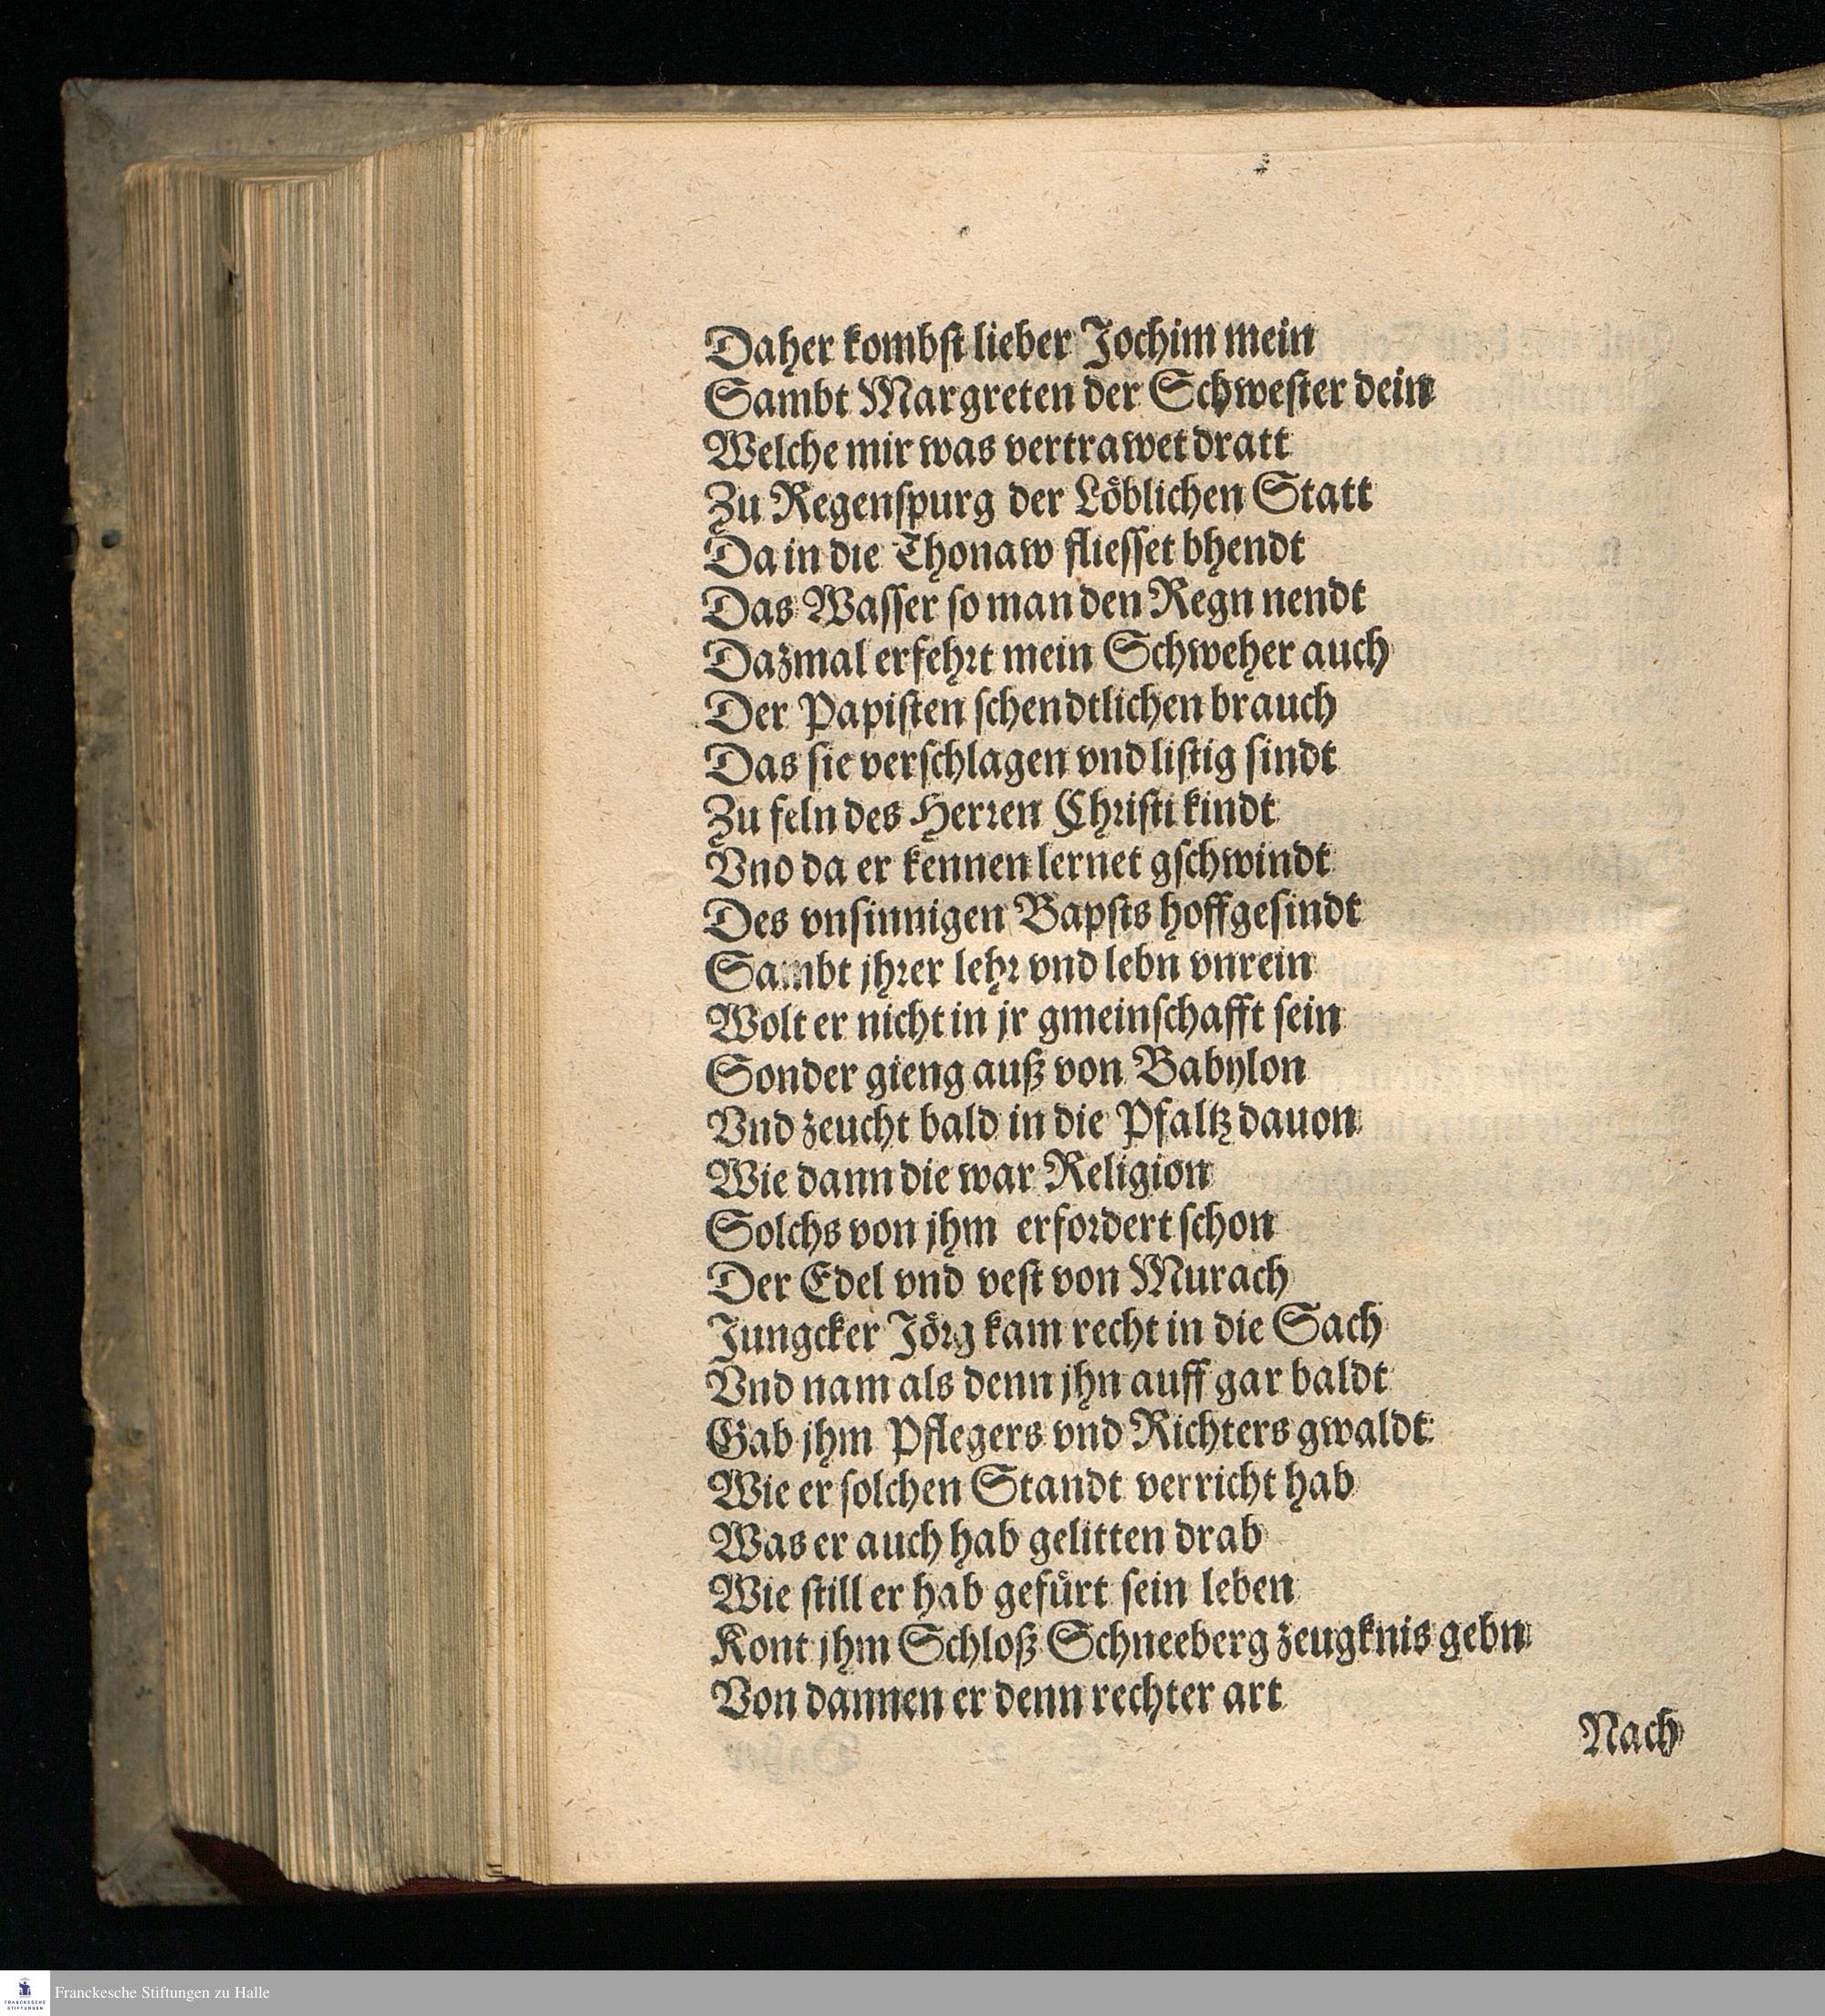 Daher kombſt lieber Jochim mein
Sambt Margreten der Schweſter dein
Welche mir was vertrawet dratt
Zu Regenſpurg der Löblichen Statt
Da in die Thonaw flieſſet bhendt
Das Waſſer ſo man den Regn nendt
Dazmal erfehrt mein Schweher auch
Der Papiſten ſchendtlichen brauch
Das ſie verſchlagen vnd liſtig ſindt
Zu feln des Herren Chriſti kindt
Vnd da er kennen lernet gſchwindt
Des vnſinnigen Bapſts hoffgeſindt
Sambt jhrer lehr vnd lebn vnrein
Wolt er nicht in jr gmeinſchafft ſein
Sonder gieng auß von Babylon
Vnd zeucht bald in die Pfaltz dauon
Wie dann die war Religion
Solchs von jhm erfordert ſchon
Der Edel vnd veſt von Murach
Jungcker Jörg kam recht in die Sach
Vnd nam als denn jhn auff gar baldt
Gab jhm Pflegers vnd Richters gwaldt
Wie er ſolchen Standt verricht hab
Was er auch hab gelitten drab
Wie ſtill er hab gefürt ſein leben
Kont jhm Schloß Schneeberg zeugknis gebn
Von dannen er denn rechter art
Nach
FRANCKESCHE STIFTUNGEN
Franckesche Stiftungen zu Halle